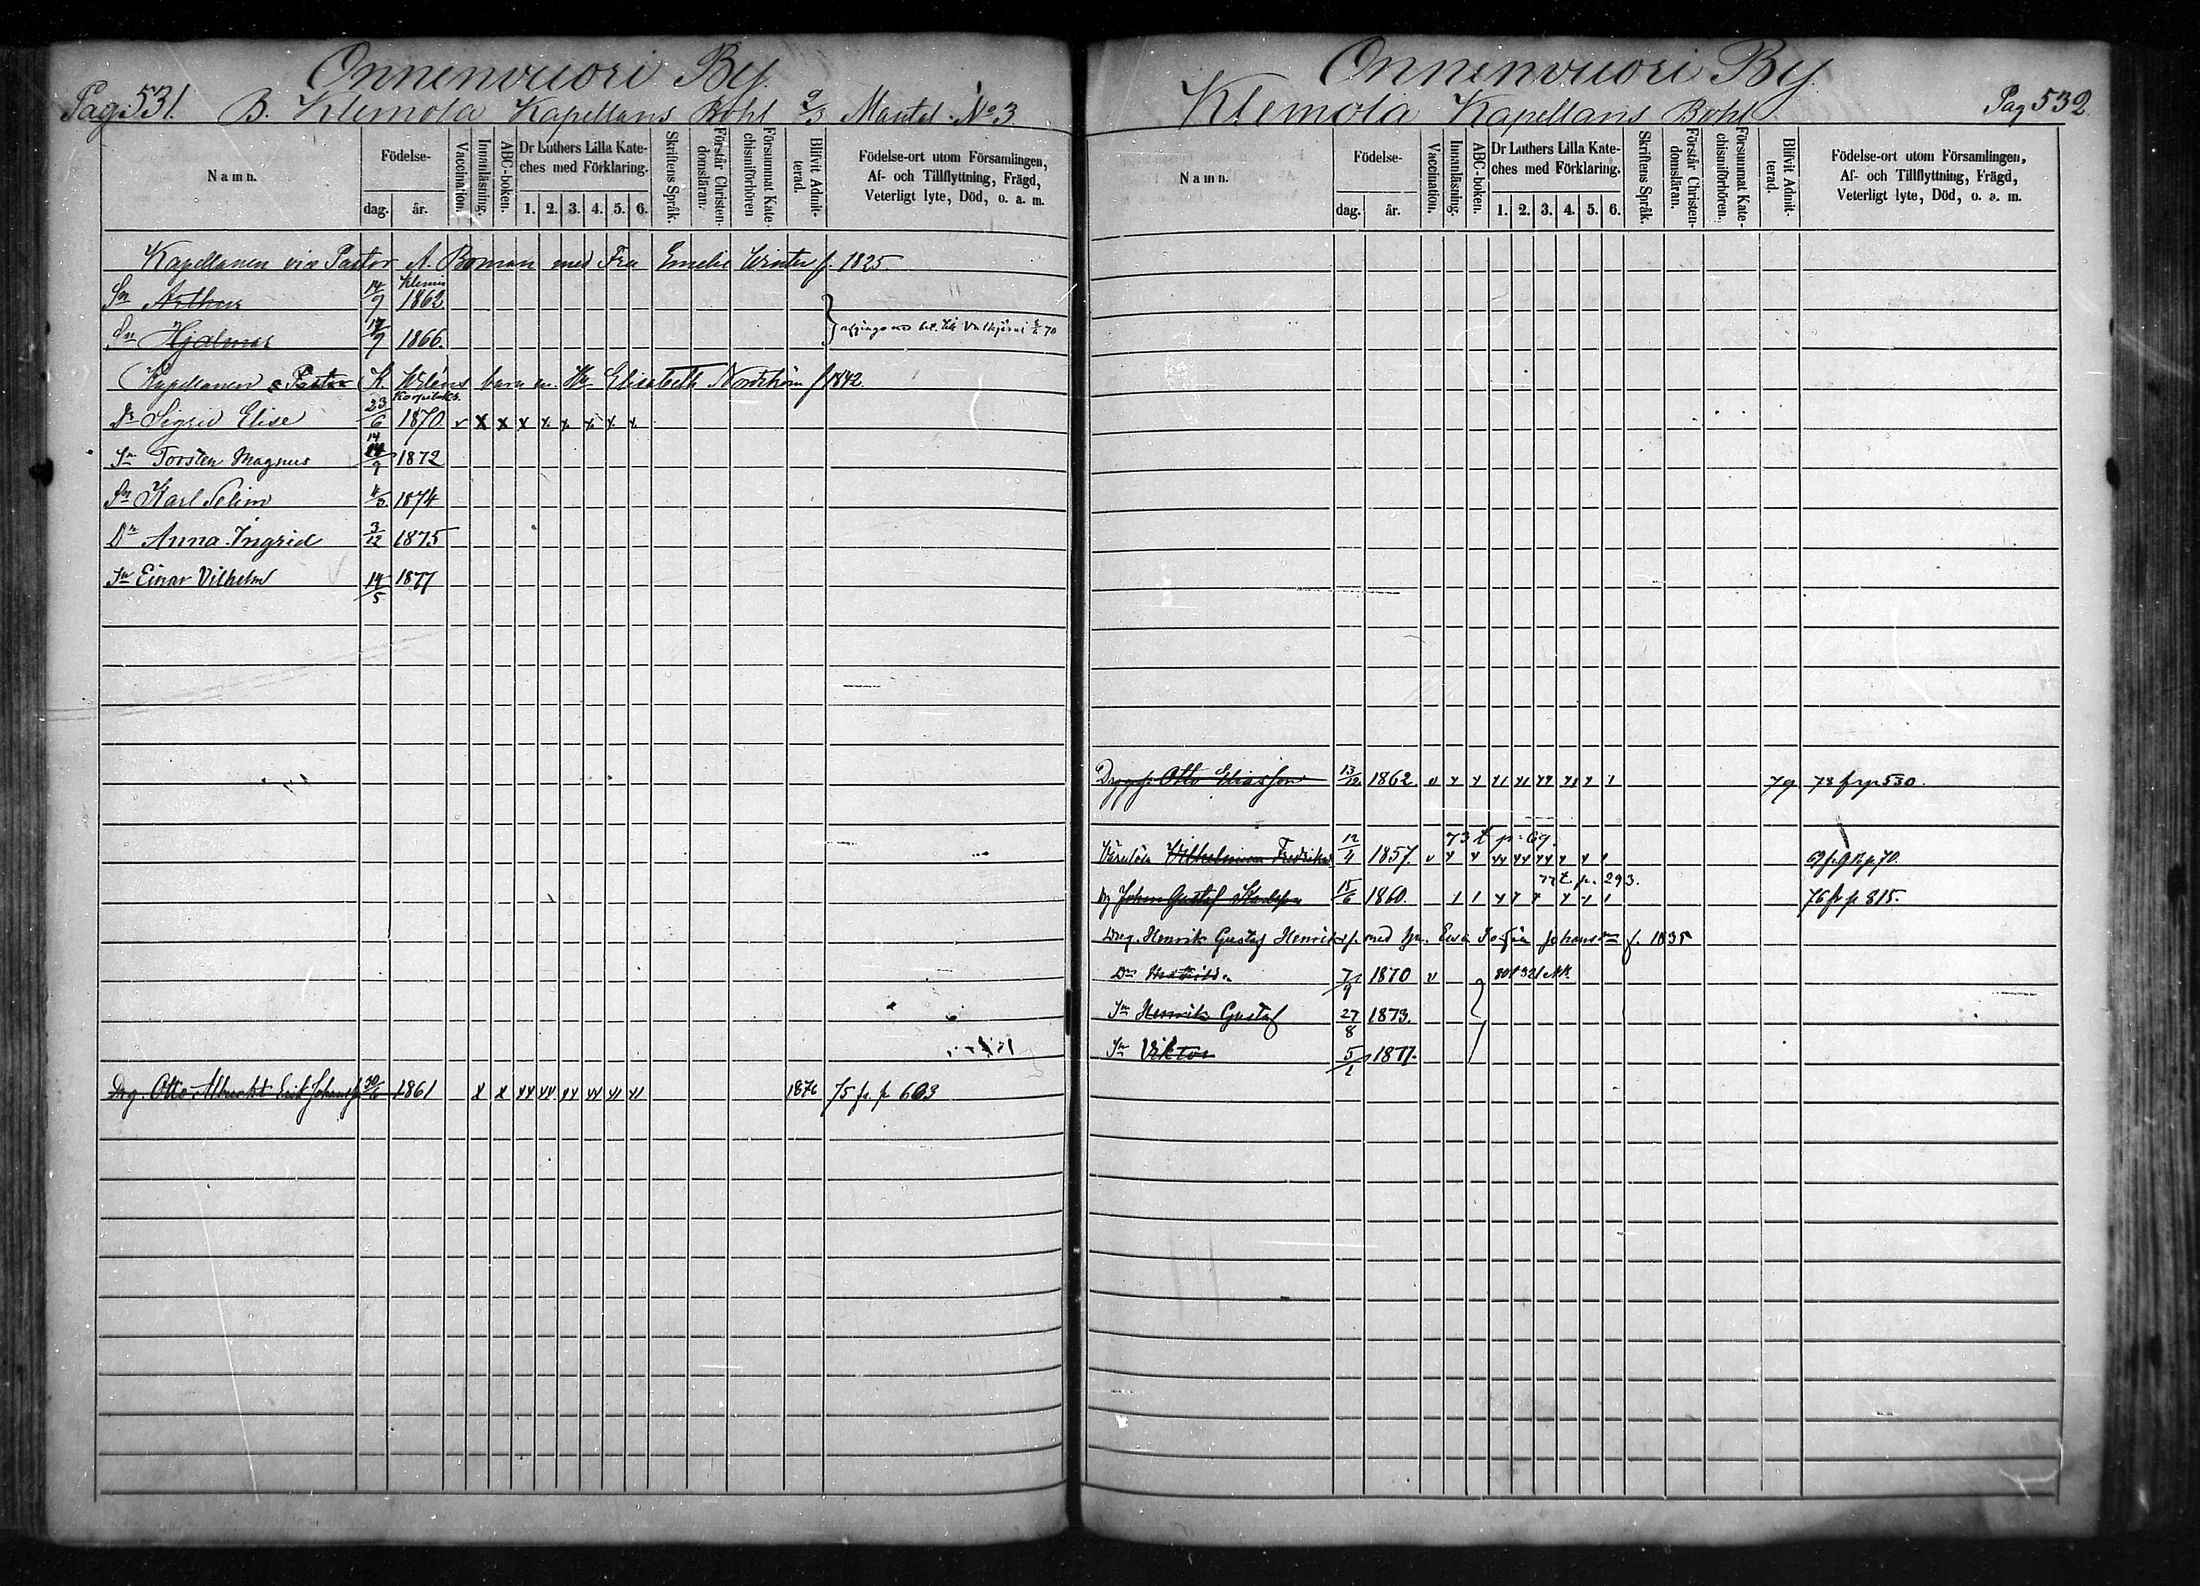 Onnenvuori By.
Pag. 531. B. Klemola Kapellans Bohl 2/3 Mantal. No 3.
Namn. Födelse- dag. år. Vaccination. Innanläsning. ABC-boken. Dr Luthers Lilla Kateches med Förklaring. 1. 2. 3. 4. 5. 6. Skriftens Språk. Förstår Christendomsläran. Försummat Katechismiförhören Blifvit Admitterad. Födelse-ort utom Församlingen, Af- och Tillflyttning, Frägd, Veterligt lyte, Död, o. a. m.
Kapellanen vice Pastor A. Boman med Fru Emelie Winter f. 1825.
Sn Arthur 14/9 1862
Sn Hjalmar 17/9 1866.
Kapellanen Pastor K. barn m. Elisabeth Nordström f 1842
Dr Sigrid Elise 23/6 1870 v x x x x x x x x
Sn Torsten Magnus 14/9 1872
Sn Karl Selim 4/3 1874
Dn Anna Ingrid 3/12 1875
Sn Einar Vilhelm 14/5 1877
Drg. Otto Albrecht Erik Johansson 30/6 1861 1876 75 fr p 603
Onnenvuori By.
Klemola Kapellans Bohl Pag 532.
Namn. Födelse- dag. år. Vaccination. Innanläsning. ABC-boken. Dr Luthers Lilla Kateches med Förklaring. 1. 2. 3. 4. 5. 6. Skriftens Språk. Förstår Christendomsläran. Försummat Katechismiförhören. Blifvit Admitterad. Födelse-ort utom Församlingen, Af- och Tillflyttning, Frägd, Veterligt lyte, Död, o. a. m.
Otto Eliasson 13/12 1862 79 78 fr p 530.
73 t p. 69.
Vilhelmina Fredrika 12/4 1857. p 70.
77 t p. 293.
Johan Gustaf 15/6 1860. 76 fr p 815.
Drg. Henrik Gustaf med hu. Eva Johans f. 1835
Dn 7/9 1870 v
Sn Henrik Gustaf 27/8 1873.
Sn Viktor 5/1 1877.